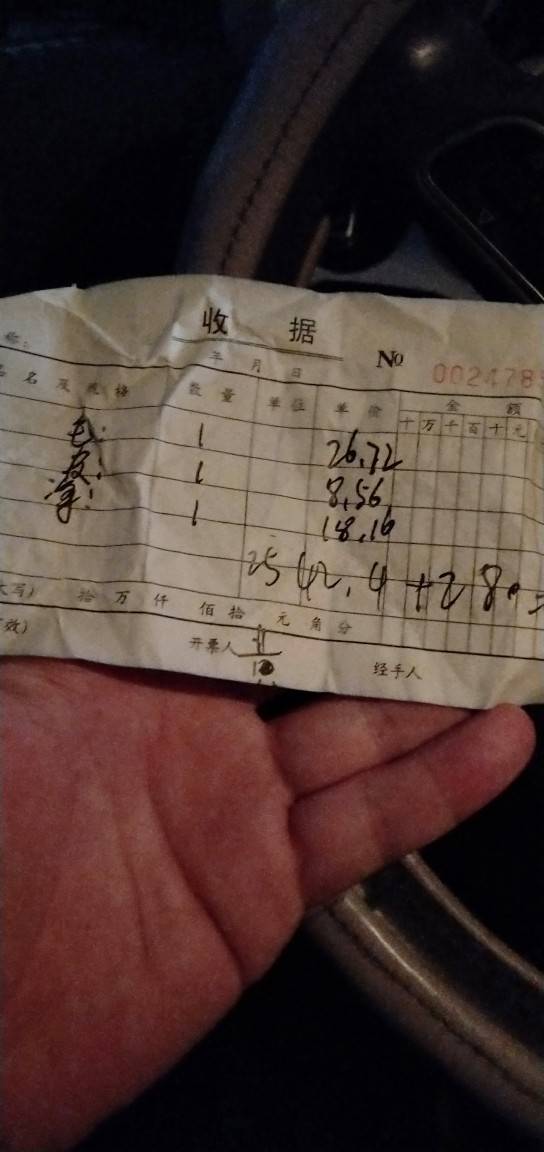 收 据
称：
年 月 日 No 0024785
品名及规格 数量 单位 单价 金额
十万千百十元
毛： 1 26.72
皮： 1 8.56
拿： 1 18.16
2542.4 + 28
大写） 拾 万 仟 佰 拾 元 角 分
效） 开票人 经手人